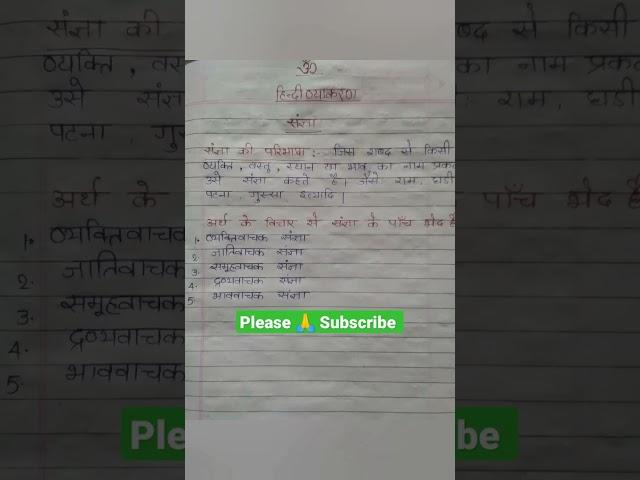 ॐ
हिन्दी व्याकरण
संज्ञा
संज्ञा की परिभाषा :- जिस शब्द से किसी
व्यक्ति, वस्तु, स्थान या भाव का नाम प्रकट
उसे संज्ञा कहते है। जैसे राम, घड़ी
पटना, गुस्सा, इत्यादि।
अर्थ के विचार से संज्ञा के पाँच भेद है
1. व्यक्तिवाचक संज्ञा
2. जातिवाचक संज्ञा
3. समूहवाचक संज्ञा
4. द्रव्यवाचक संज्ञा
5. भाववाचक संज्ञा
Please 🙏 Subscribe